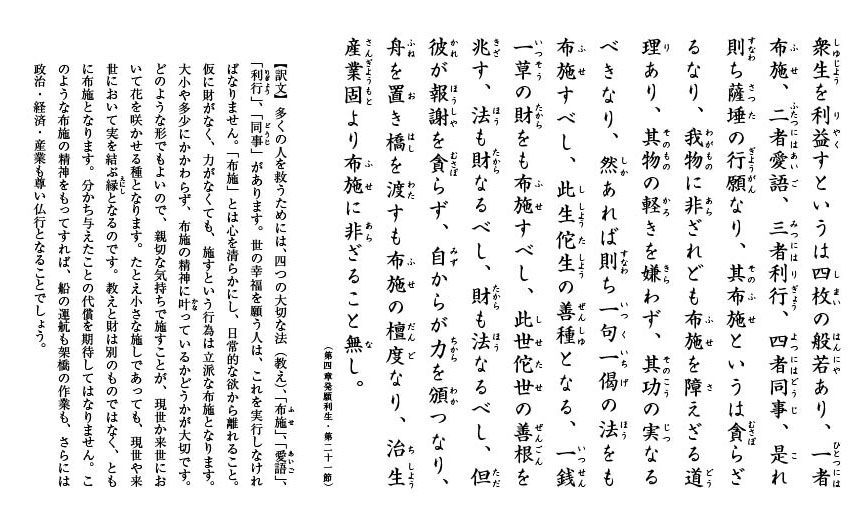 衆生を利益すというは四枚の般若あり、一者
布施、二者愛語、三者利行、四者同事、是れ
則ち薩埵の行願なり、其布施というは貪らざ
るなり、我物に非ざれども布施を障えざる道
理あり、其物の軽きを嫌わず、其功の実なる
べきなり、然あれば則ち一句一偈の法をも
布施すべし、此生佗生の善種となる、一銭
一草の財をも布施すべし、此世佗世の善根を
兆す、法も財なるべし、財も法なるべし、但
彼が報謝を貪らず、自からが力を頒つなり、
舟を置き橋を渡すも布施の檀度なり、治生
産業固より布施に非ざること無し。
(第四章発願利生・第二十一節)
【訳文】多くの人を救うためには、四つの大切な法(教え)、「布施」、「愛語」、
「利行」、「同事」があります。世の幸福を願う人は、これを実行しなけれ
ばなりません。「布施」とは心を清らかにし、日常的な欲から離れること。
仮に財がなく、力がなくても、施すという行為は立派な布施となります。
大小や多少にかかわらず、布施の精神に叶っているかどうかが大切です。
どのような形でもよいので、親切な気持ちで施すことが、現世か来世にお
いて花を咲かせる種となります。たとえ小さな施しであっても、現世や来
世において実を結ぶ縁となるのです。教えと財は別のものではなく、とも
に布施となります。分かち与えたことの代償を期待してはなりません。こ
のような布施の精神をもってすれば、船の運航も架橋の作業も、さらには
政治・経済・産業も尊い仏行となることでしょう。